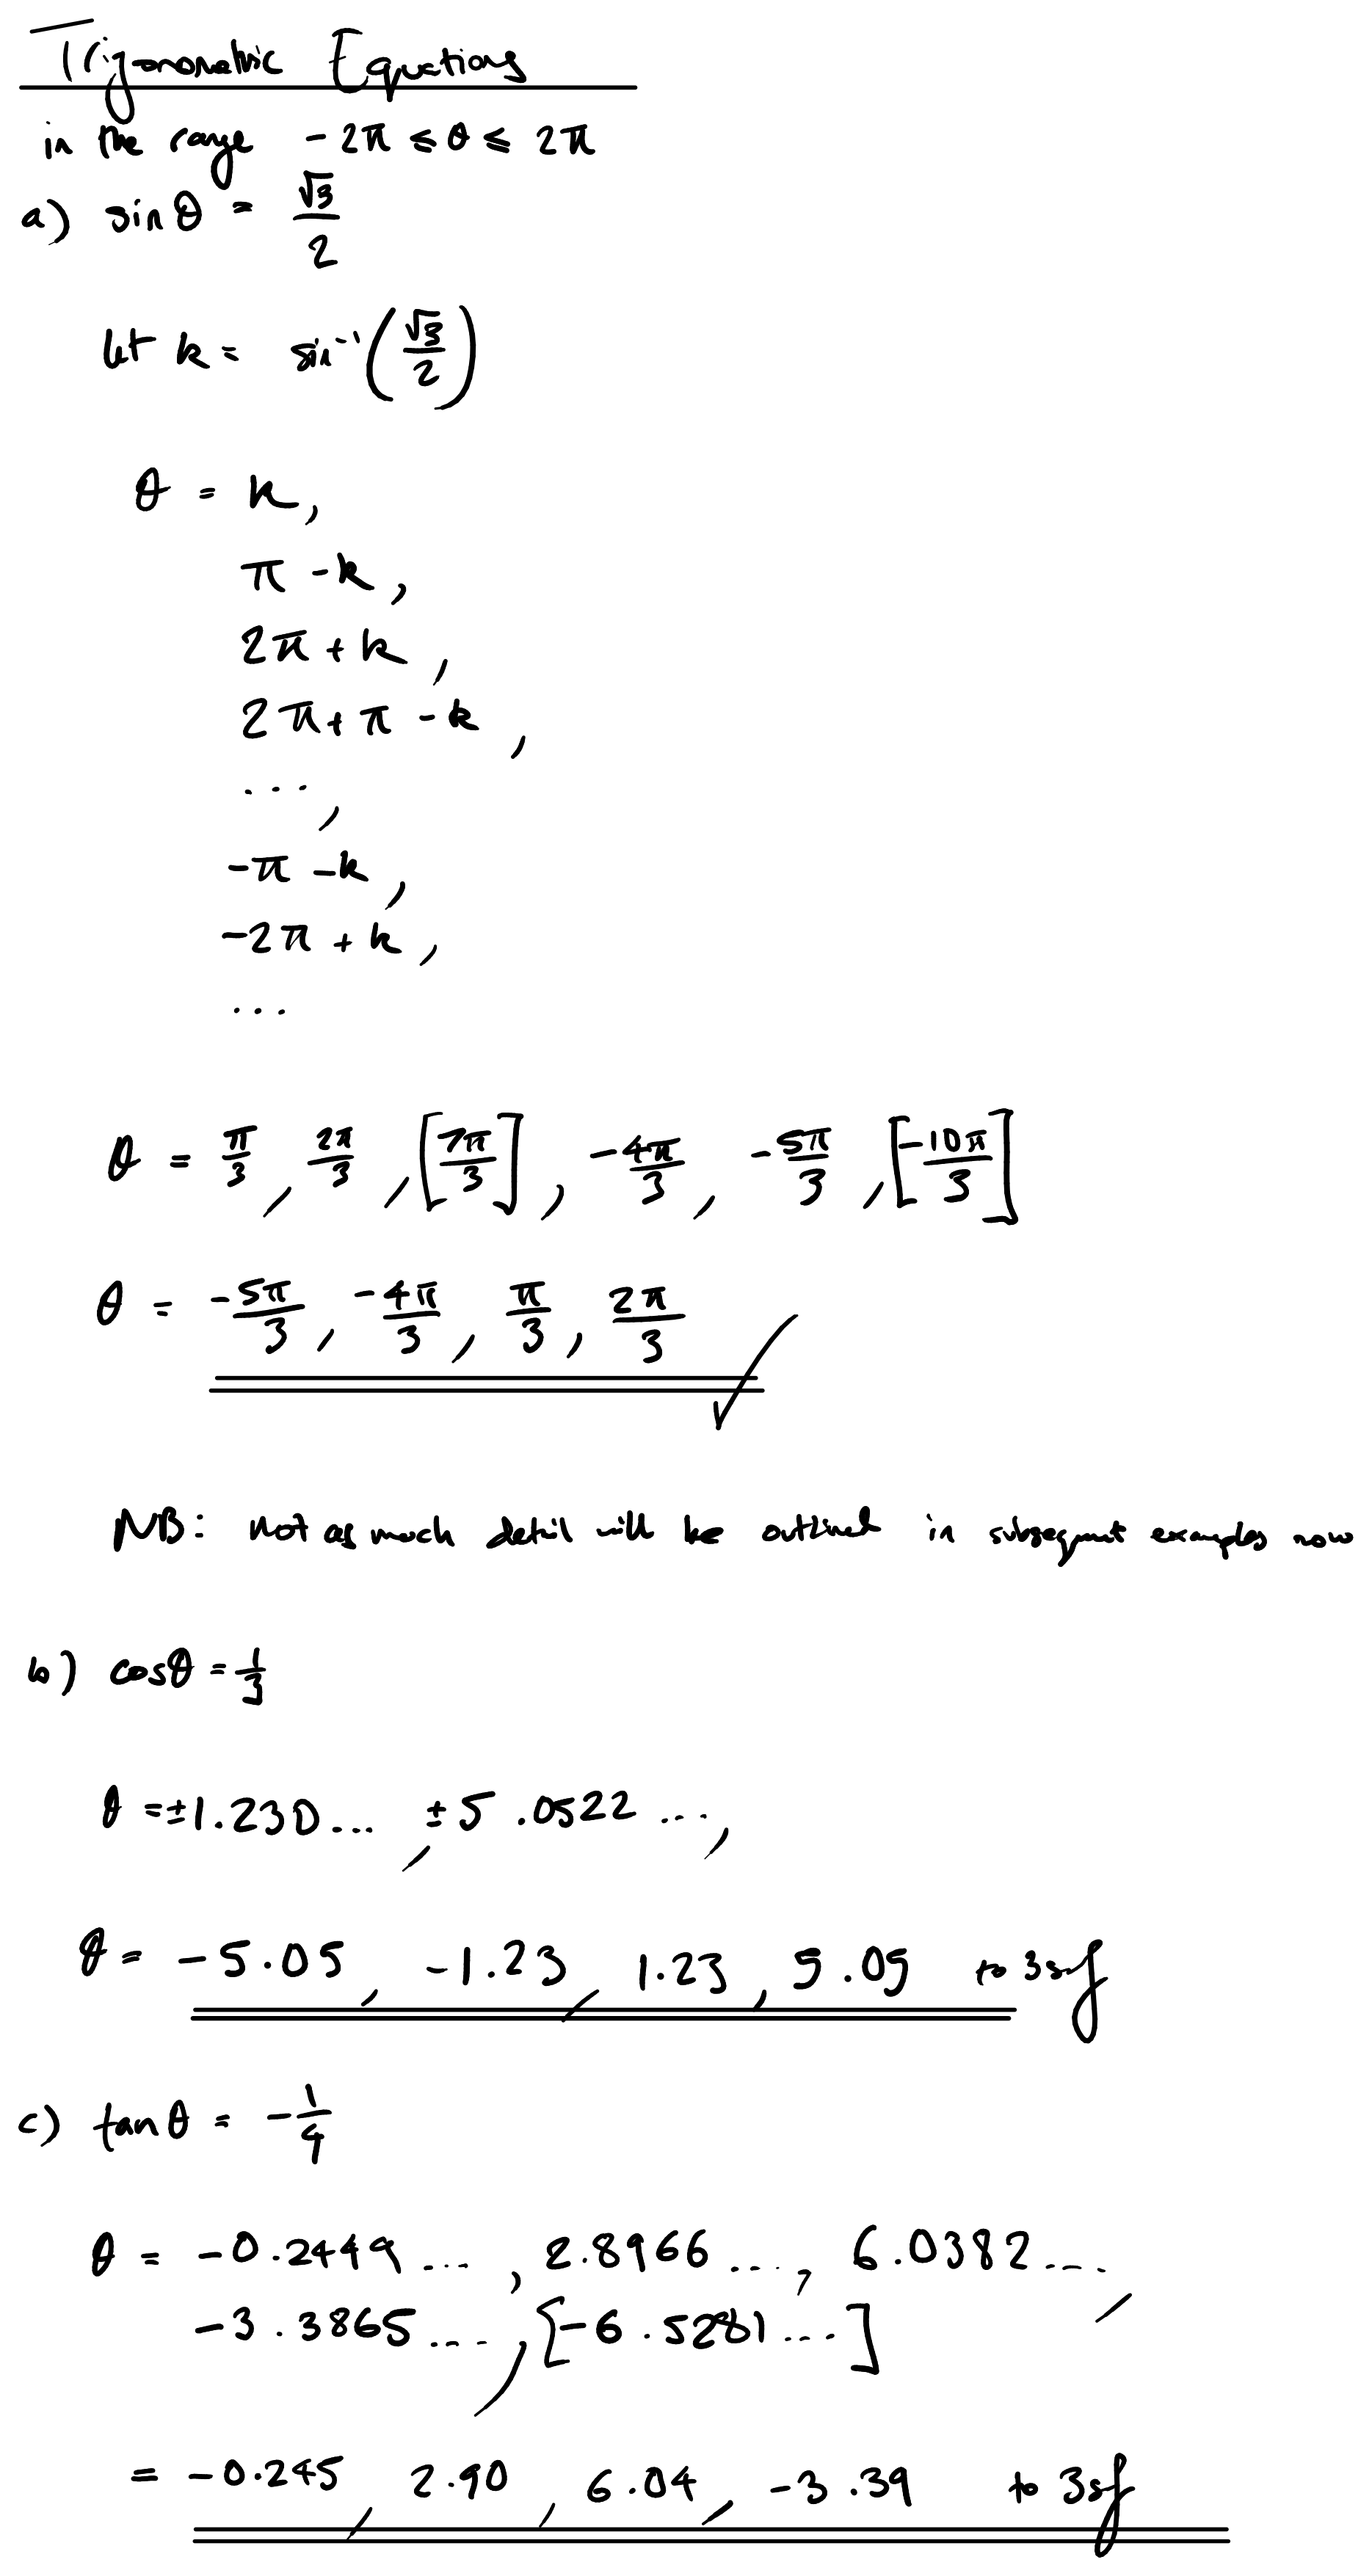 Trigonometric Equations
in the range -2π ≤ θ ≤ 2π
a) sinθ = √3/2
let k = sin⁻¹(√3/2)
θ = k,
π - k,
2π + k,
2π + π - k,
...,
-π - k,
-2π + k,
...
θ = π/3, 2π/3, [7π/3], -4π/3, -5π/3, [-10π/3]
θ = -5π/3, -4π/3, π/3, 2π/3 ✓
NB: Not as much detail will be outlined in subsequent examples now
b) cosθ = 1/3
θ = ±1.230..., ±5.0522...,
θ = -5.05, -1.23, 1.23, 5.05 to 3sf
c) tanθ = -1/4
θ = -0.2449..., 2.8966..., 6.0382...,
-3.3865..., [-6.5281...]
= -0.245, 2.90, 6.04, -3.39 to 3sf